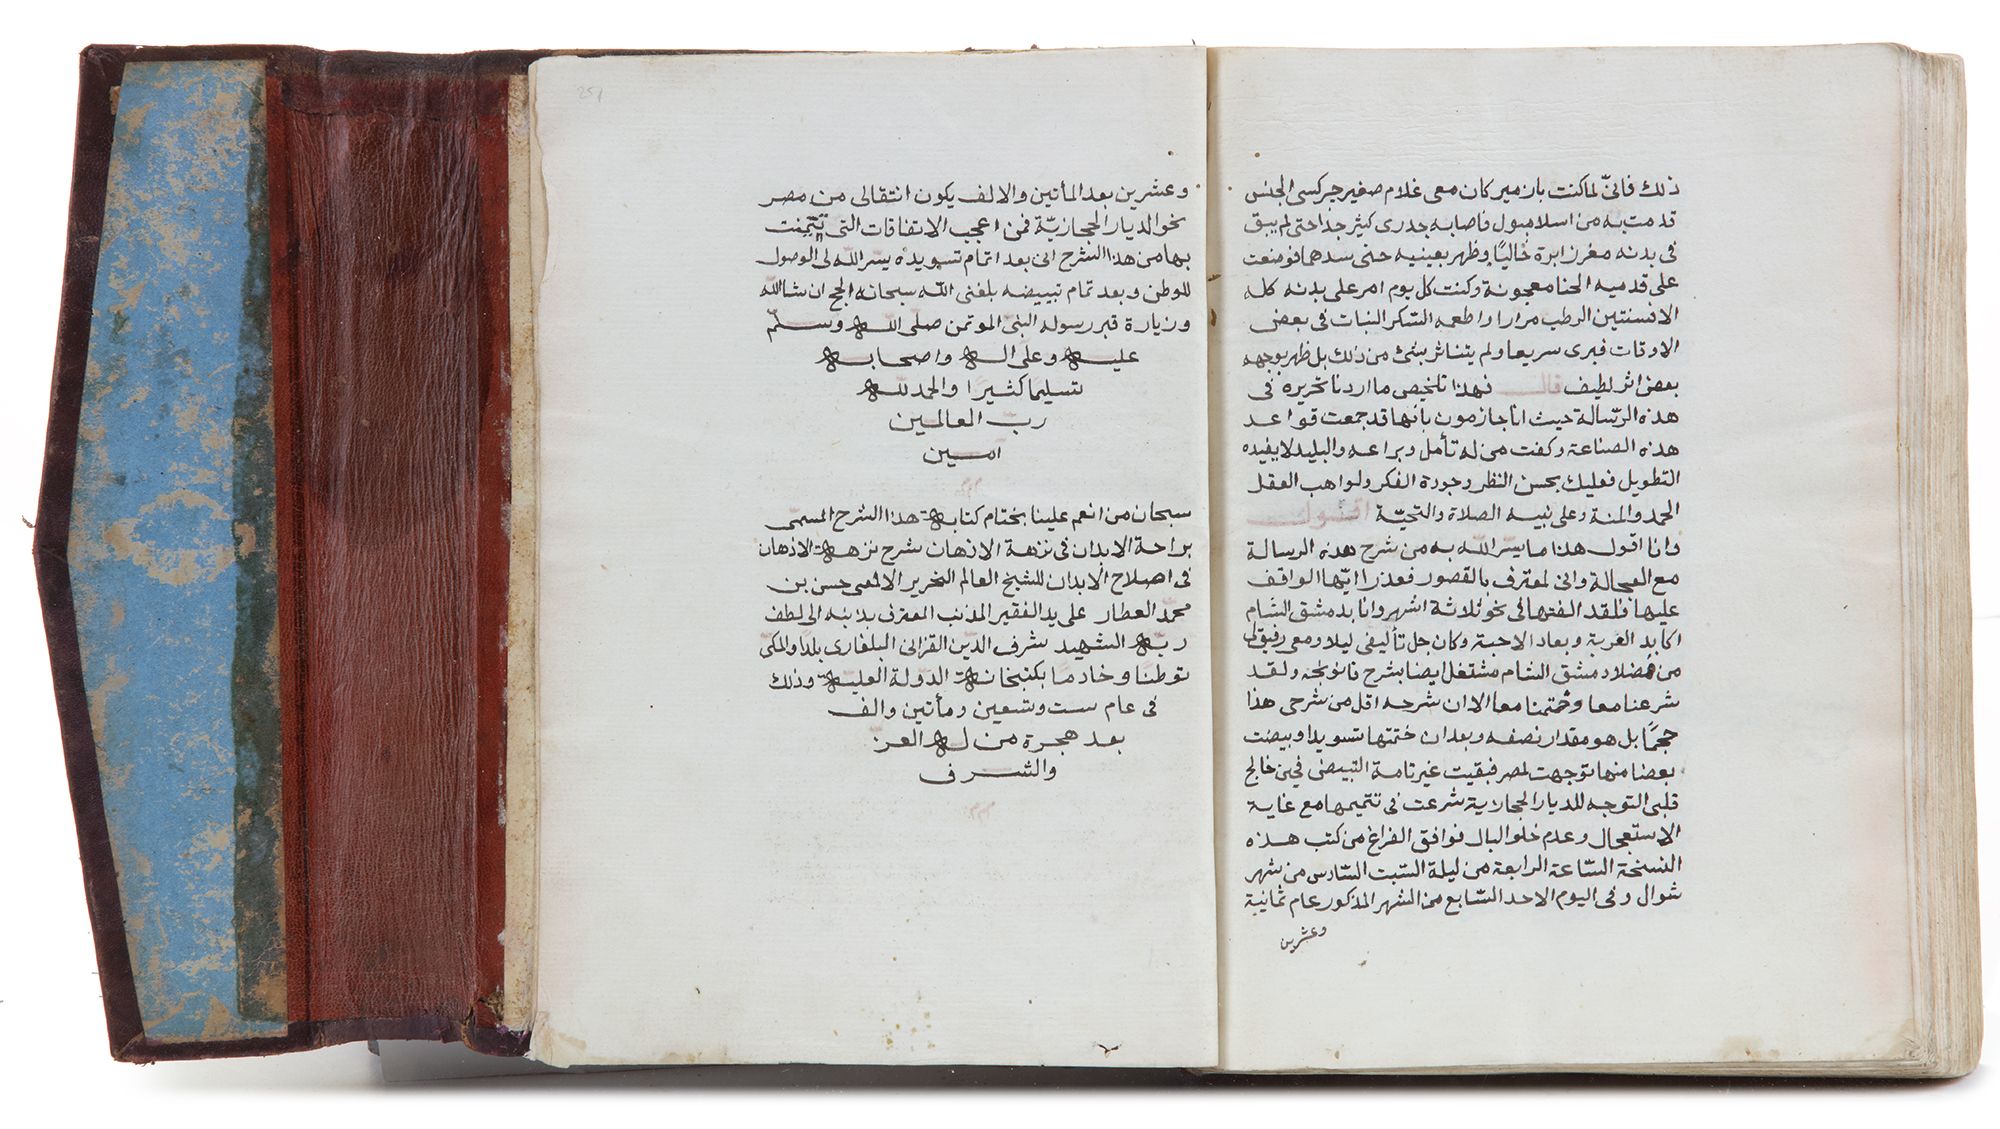 ذلك فانى لما كنت بازمير كان معى غلام صغير جركسى الجنس
قدمت به من اسلامبول فاصابه جدرى كثير جدا حتى لم يبق
فى بدنه مغرز ابرة خاليا وظهر بعينيه حتى سدهما فوضعت
على قدميه الحنا معجونة وكنت كل يوم امر على بدنه كله
الافسنتين الرطب مرارا واطعمه السكر النبات فى بعض
الاوقات فبرى سريعا ولم يتناثر بشئ من ذلك بل ظهر بوجهه
بعض اثر لطيف قال فهذا تلخيص ما اردنا تحريره فى
هذه الرسالة حيث انا جازمون بانها قد جمعت قواعد
هذه الصناعة وكفت من له تأمل وبراعه والبليد لا يفيده
التطويل فعليك بحسن النظر وجودة الفكر ولواهب العقل
الحمد والمنة وعلى نبيه الصلاة والتحيّة اقول
وانا اقول هذا ما يسّر الله به من شرح هذه الرسالة
مع العجالة وانى لمعترف بالقصور فعذرا ايّها الواقف
عليها فلقد الفتها فى نحو ثلاثة اشهر وانا بدمشق الشام
اكابد الغربة وبعاد الاحبة وكان جل تأليفى ليلا ومعى رفيق لى
من فضلاء دمشق الشام مشتغل ايضا بشرح ولقد
شرعنا معا وختمنا معا الا ان شرحه اقل من شرحى هذا
حجمًا بل هو مقدار نصفه وبعد ان ختمتها تسويدا وبيضت
بعضا منها توجهت لمصر فبقيت غير تامة التبيض فحين خالج
قلبى التوجه للديار الحجازية شرعت فى تتميمها مع غاية
الاستعجال وعدم خلو البال فوافق الفراغ من كتب هذه
النسخة السّاعة الرابعة من ليلة السّبت السّادس من شهر
شوال وفى اليوم الاحد السّابع من الشهر المذكور عام ثمانية
وعشرين
251
وعشرين بعد المأتين والالف يكون انتقالى من مصر
نحو الديار الحجازيّة فمن اعجب الاتفاقات التى تيمّنت
بها من هذا الشرح انى بعد اتمام تسويده يسّر الله لى الوصول
للوطن وبعد تمام تبييضه بلغنى الله سبحانه الحج ان شا الله
وزيارة قبر رسوله النبى الموتمن صلى الله وسلّم
عليه وعلى اله واصحابه
تسليما كثيرا والحمد لله
ربّ العالمين
آمين
سبحان من انعم علينا بختام كتابة هذا الشرح المسمى
براحة الابدان فى نزهة الاذهان شرح نزهة الاذهان
فى اصلاح الابدان للشيخ العالم النحرير الالمعى حسن بن
محمّد العطار على يد الفقير المذنب المعترف بذنبه الى لطف
ربّه الشهيد شرف الدّين القزانى البلغارى بلدا والمكى
توطنًا وخادمًا بكتبخانة الدّولة العليّة وذلك
فى عام ست وتسعين ومأتين والف
بعد هجرة من له العزّ
والشرف